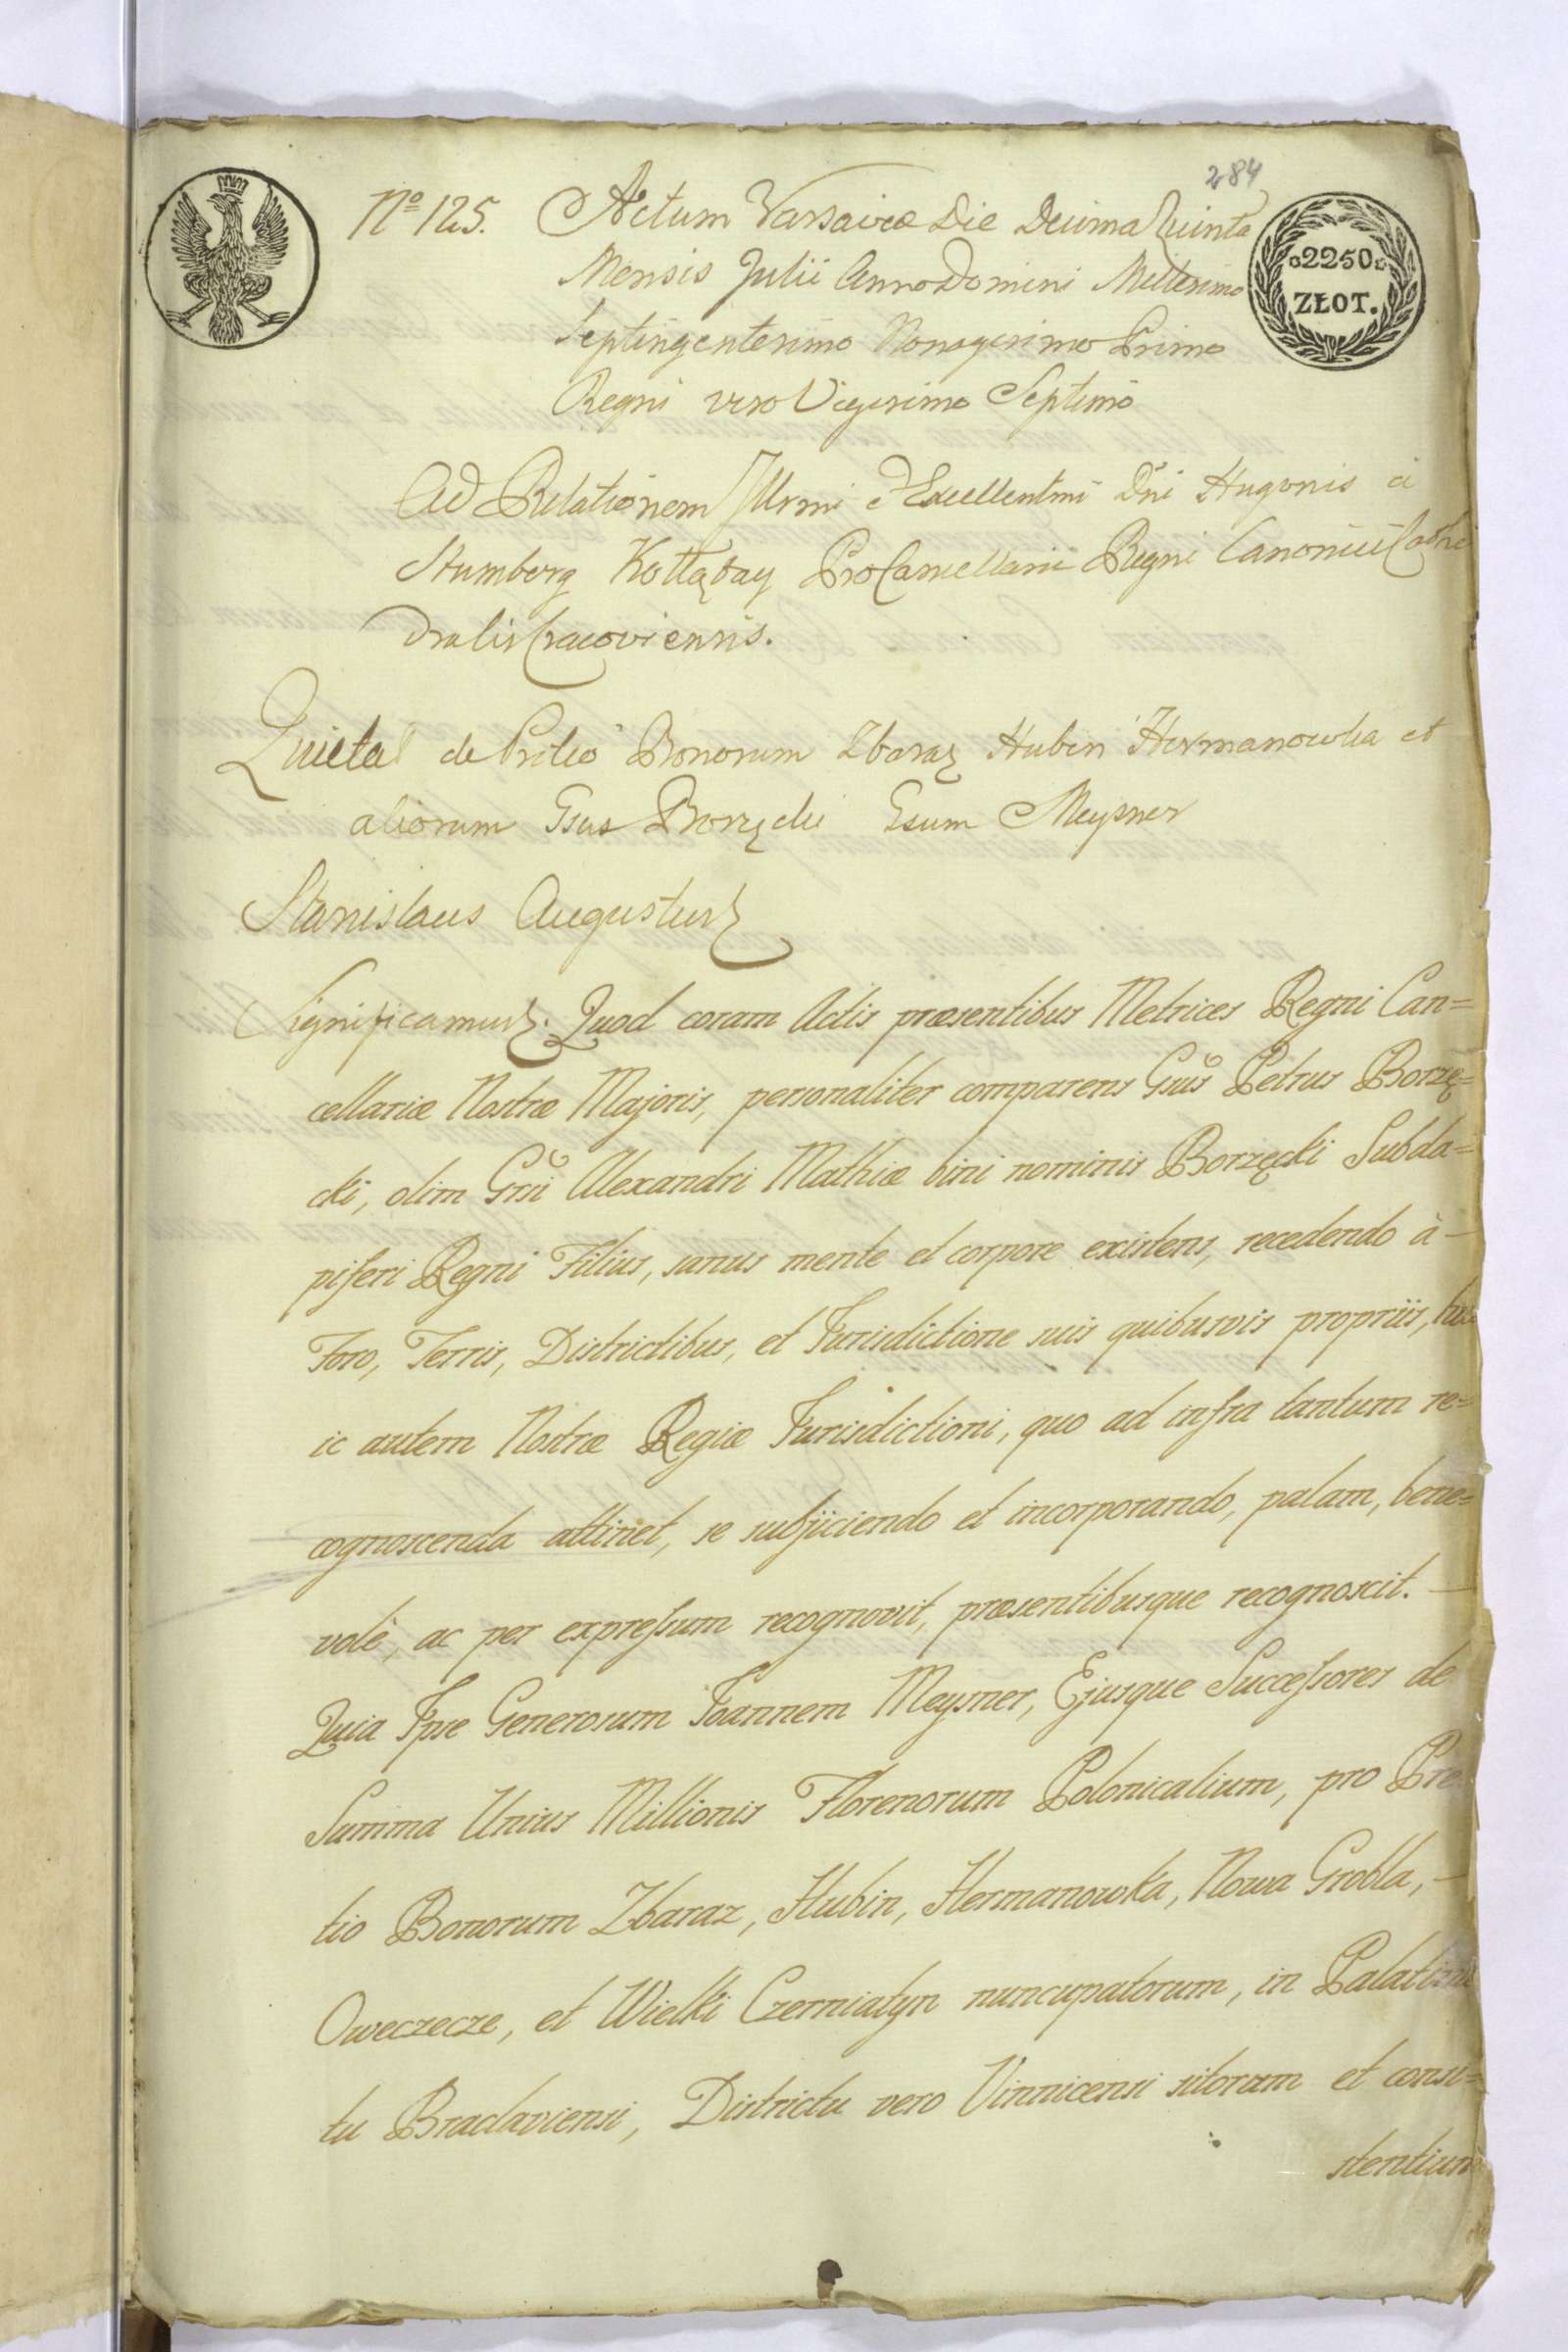 284
Nº 125. Actum Varsaviæ Die Decima Quinta
Mensis Julii Anno Domini Millesimo
Septingentesimo Nonagesimo Primo
Regni vero Vigesimo Septimo
2250
ZŁOT.
Ad Relationem Illrmi Excellentmi Dni Hugonis a
Stumberg Kołłątay ProCancellarii Regni Canonici Cathe
dralis Cracoviensis.
Quietat de Pretio Bonorum Zbaraz Hubin Hermanowka et
aliorum Gsus Borzęcki Gsum Meysner
Stanislaus Augustus
Significamus. Quod coram Actis præsentibus Metrices Regni Can=
cellariæ Nostræ Majoris, personaliter comparens Gsus Petrus Borzę=
cki, olim Gsi Alexandri Mathiæ bini nominis Borzęcki Subda=
piferi Regni Filius, sanus mente et corpore existens, recedendo à
Foro, Terris, Districtibus, et Jurisdictione suis quibusvis propriis, hu
ic autem Nostræ Regiæ Jurisdictioni, quo ad infra tantum re=
cognoscenda attinet, se subjiciendo et incorporando, palam, bene=
volè, ac per expressum recognovit, præsentibusque recognoscit. —
Quia Ipse Generosum Joannem Meysner, Ejusque Successores de
Summa Unius Millionis Florenorum Polonicalium, pro Pre
tio Bonorum Zbaraz, Hubin, Hermanowka, Nowa Grobla, —
Oweczecze, et Wielki Czerniatyn nuncupatorum, in Palatina
tu Braclaviensi, Districtu vero Vinnicensi sitorum et consi=
stentium